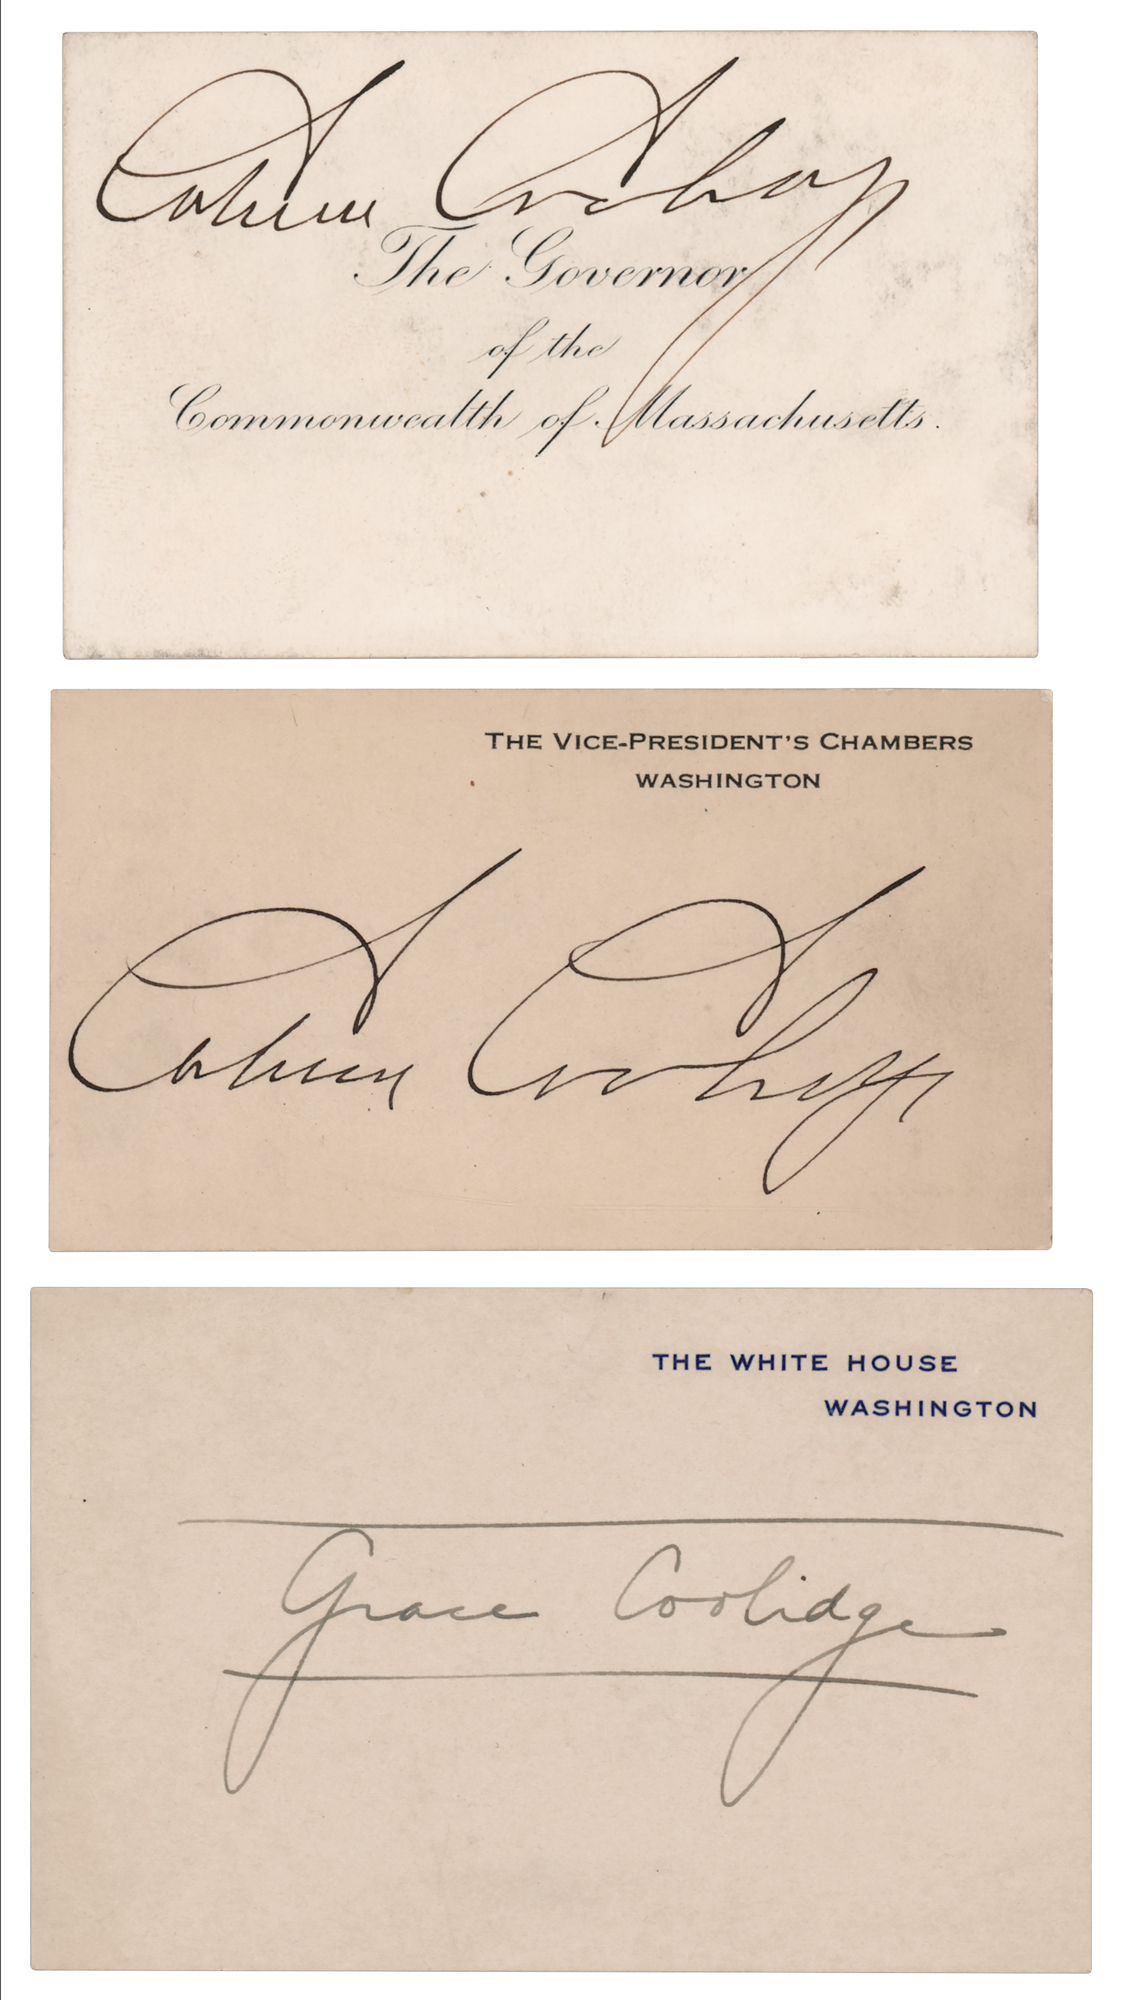 Calvin Coolidge
The Governor
of the
Commonwealth of Massachusetts.
THE VICE-PRESIDENT'S CHAMBERS
WASHINGTON
Calvin Coolidge
THE WHITE HOUSE
WASHINGTON
Grace Coolidge